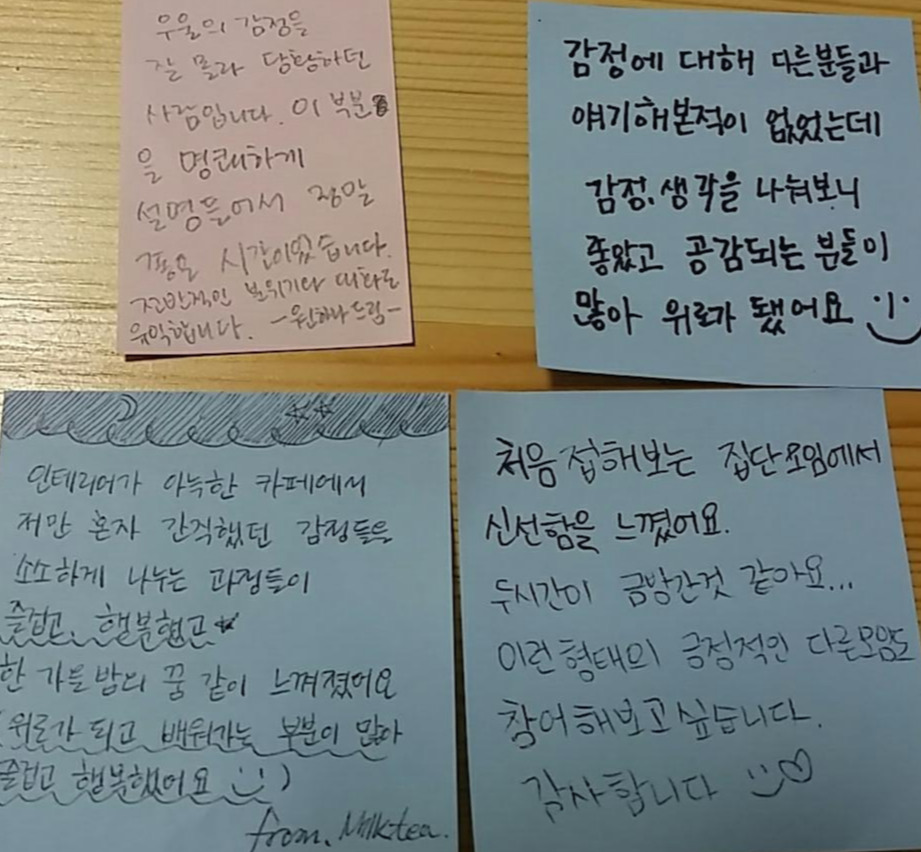 우울의 감정을
잘 몰라 당황하던
사람입니다. 이 부분
을 명쾌하게
설명들어서 정말
시간이었습니다.
전반적인 분위기와 대화도
유익합니다. -원하나 드림-
감정에 대해 다른분들과
얘기해본적이 없었는데
감정, 생각을 나눠보니
좋았고 공감되는 분들이
많아 위로가 됐어요
인테리어가 아늑한 카페에서
저만 혼자 간직했던 감정들을
소소하게 나누는 과정들이
즐겁고, 행복했고
한 가을밤의 꿈 같이 느껴졌어요
(위로가 되고 배워가는 부분이 많아
즐겁고 행복했어요 :))
from. Milktea.
처음 접해보는 집단모임에서
신선함을 느꼈어요.
두시간이 금방간것 같아요...
이런형태의 긍정적인 다른모임도
참여해보고싶습니다.
감사합니다 :) ♡